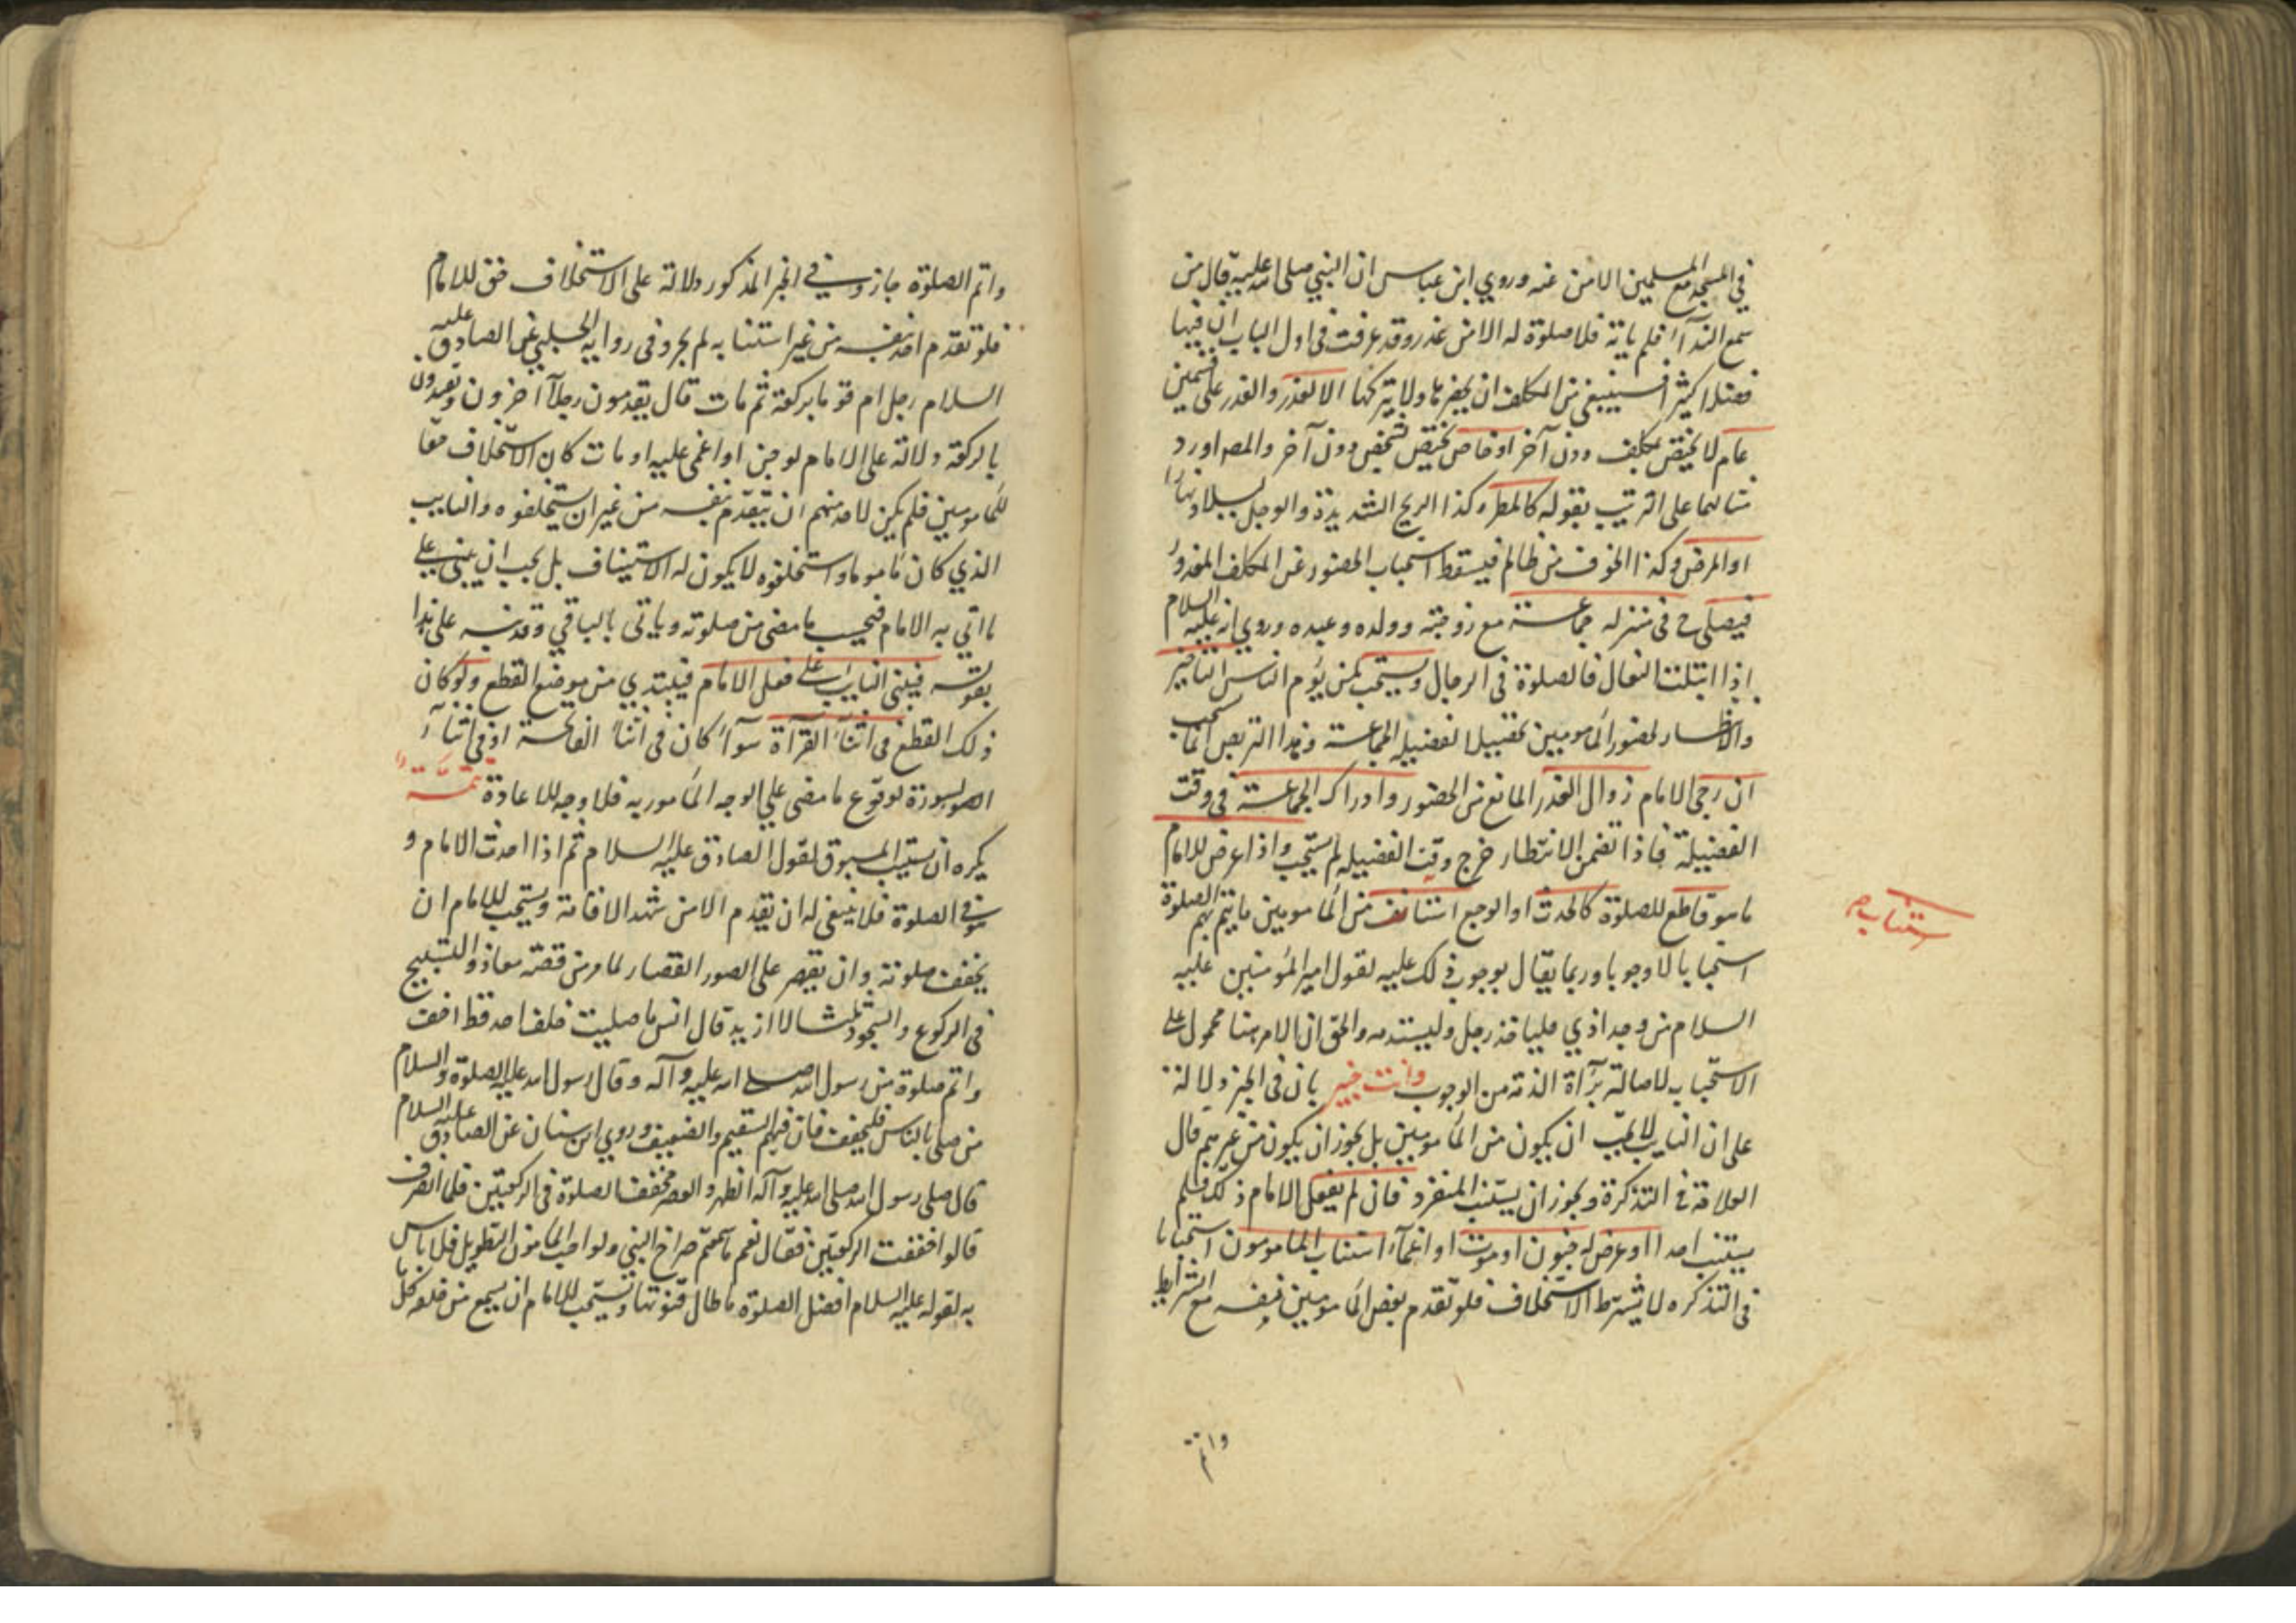 في المسجد مع المسلمين الا من عذر وروي ابن عباس ان النبي صلى الله عليه قال من
سمع الندآء فلم ياته فلا صلوة له الا من عذر وقد عرفت في اول الباب ان فيها
فضلا كثيرا فينبغي من المكلف ان يحضرها ولا يتركها الا لعذر والعذر على قسمين
عام لا يختص بمكلف دون آخر او خاص يختص بشخص دون آخر والمصـ اورد
مثالهما على الترتيب بقوله كالمطر وكذا الريح الشديدة والوحل ليلا ونهارا
او المرض وكذا الخوف من ظالم فيسقط استحباب الحضور عن المكلف المعذور
فيصلي ح في منزله جماعة مع زوجته وولده وعبده وروي انه عليه السلام
اذا ابتلت النعال فالصلوة في الرحال ويستحب لمن يؤم الناس التاخير
والانتظار لحضور المأمومين تحصيلا لفضيله الجماعة وهذا التربص انما يستحب
ان رجى الامام زوال العذر المانع من الحضور وادراك الجماعة في وقت
الفضيلة فاذا تضمن الانتظار خرج وقت الفضيله لم يستحب واذا عرض للامام
ما هو قاطع للصلوة كالحدث او الوجع استنا من المأمومين ما يتم بهم الصلوة
ستناب صح
استحبابا لا وجوبا وربما يقال بوجوب ذلك عليه لقول امير المؤمنين عليه
السلام من وجد اذي فلياخذ رجل وليقدمه والحق ان الامر هنا محمول على
الاستحباب لاصالة برآءة الذمة من الوجوب وانت خبير بان في الخبر دلالة
على ان النايب لا يجب ان يكون من المأمومين بل يجوز ان يكون من غيرهم قال
العلامة في التذكرة ويجوز ان يستنب المنفرد فان لم يفعل الامام ذلك فلم
يستنب احدا او عرض له جنون او موت او اغمآء استناب المأمومون استحبابا
في التذكره لا يشترط الاستخلاف فلو تقدم بعض المأمومين بنفسه مع الشرايط
واتم
واتم الصلوة جاز وفي الخبر المذكور دلالة على الاستخلاف حق للامام
فلو تقدم احد بنفسه من غير استنابه لم يجز وفي رواية الحلبي عن الصادق عليه
السلام رجل ام قوما بركعة ثم مات قال يقدمون رجلا آخر ون ويعتدون
بالركعة دلالة على الامام لو جن او اغمى عليه او مات كان الاستخلاف حقا
للمأمومين فلم يكن لاحد منهم ان يتقدم بنفسه من غير ان يستخلفوه والنايب
الذي كان مأموما واستخلفوه لا يكون له الاستيناف بل يجب ان يبني على
ما اتي به الامام فيحسب ما مضى من صلوته وياتي بالباقي وقد نبه على هذا
بقوله فيبني النايب على فعل الامام فيبتدي من موضع القطع ولو كان
ذلك القطع في اثنآء القرآءة سوآء كان في اثنآء الفاتحة او في اثنآء
السورة لوقوع ما مضى على الوجه المأمور به فلا وجه للاعادة تتمة
يكره ان يستنيب المسبوق لقول الصادق عليه السلام ثم اذا احدث الامام و
هو في الصلوة فلا ينبغي له ان يقدم الا من شهد الاقامة ويستحب للامام ان
يخفف صلوته وان يقصر على الصور القصار لما مر من قصة معاذ والتسبيح
في الركوع والسجود ثلثا لا ازيد قال انس ما صليت خلف احد قط اخف
واتم صلوة من رسول الله صلى الله عليه وآله وقال رسول الله عليه الصلوة والسلام
من صلى بالناس فليخفف فان فيهم السقيم والضعيف وروي ابن سنان عن الصادق عليه السلام
قال صلى رسول الله صلى الله عليه وآله الظهر والعصر فخفف الصلوة في الركعتين فلما انصرف
قالوا خففت الركعتين فقال نعم ما سمعتم صراخ الصبي ولو احب المأمون التطويل فلا باس
به لقوله عليه السلام افضل الصلوة ما طال قنوتها ويستحب للامام ان يسمع من خلفه كل ما